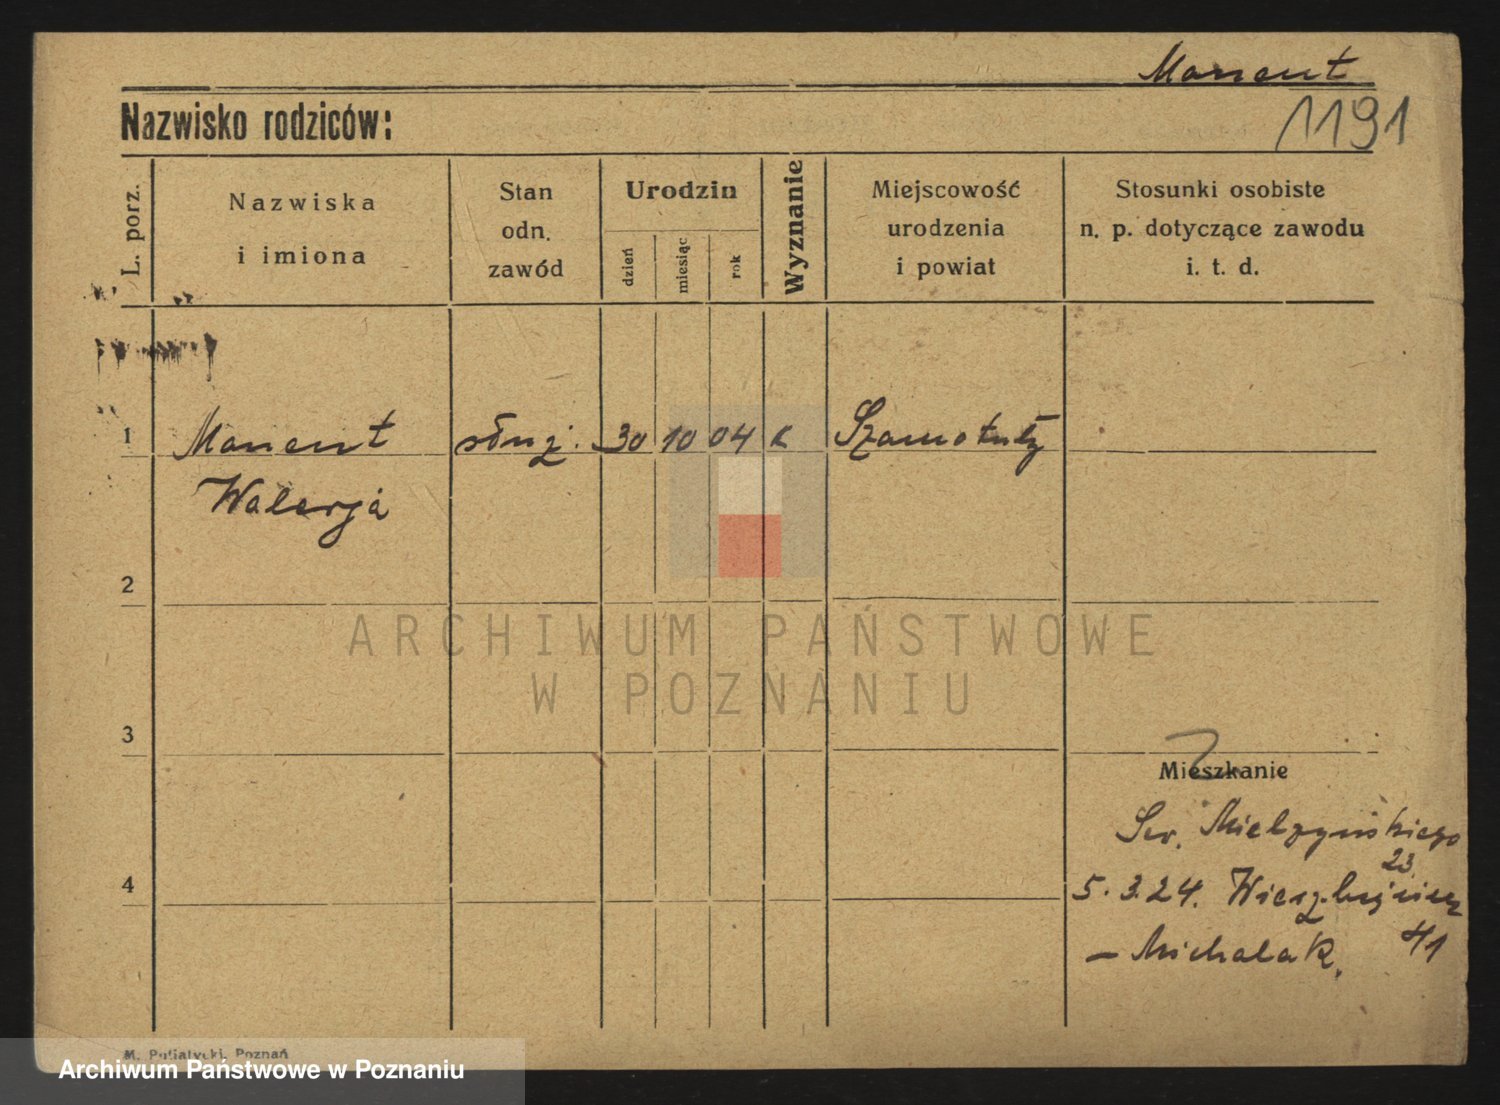 Manent
Nazwisko rodziców:
1191
L. porz.
Nazwiska
i imiona
Stan
odn.
zawód
Urodzin
dzień
miesiąc
rok
Wyznanie
Miejscowość
urodzenia
i powiat
Stosunki osobiste
n. p. dotyczące zawodu
i. t. d.
1
Manent
służ.
30
10
04
K
Szamotuły
Walerja
ARCHIWUM PAŃSTWOWE
W POZNANIU
2
3
Mieszkanie
Sew. Mielżyńskiego
23
4
5.3.24.
41
– Michalak.
M. Putiatycki, Poznań
Archiwum Państwowe w Poznaniu